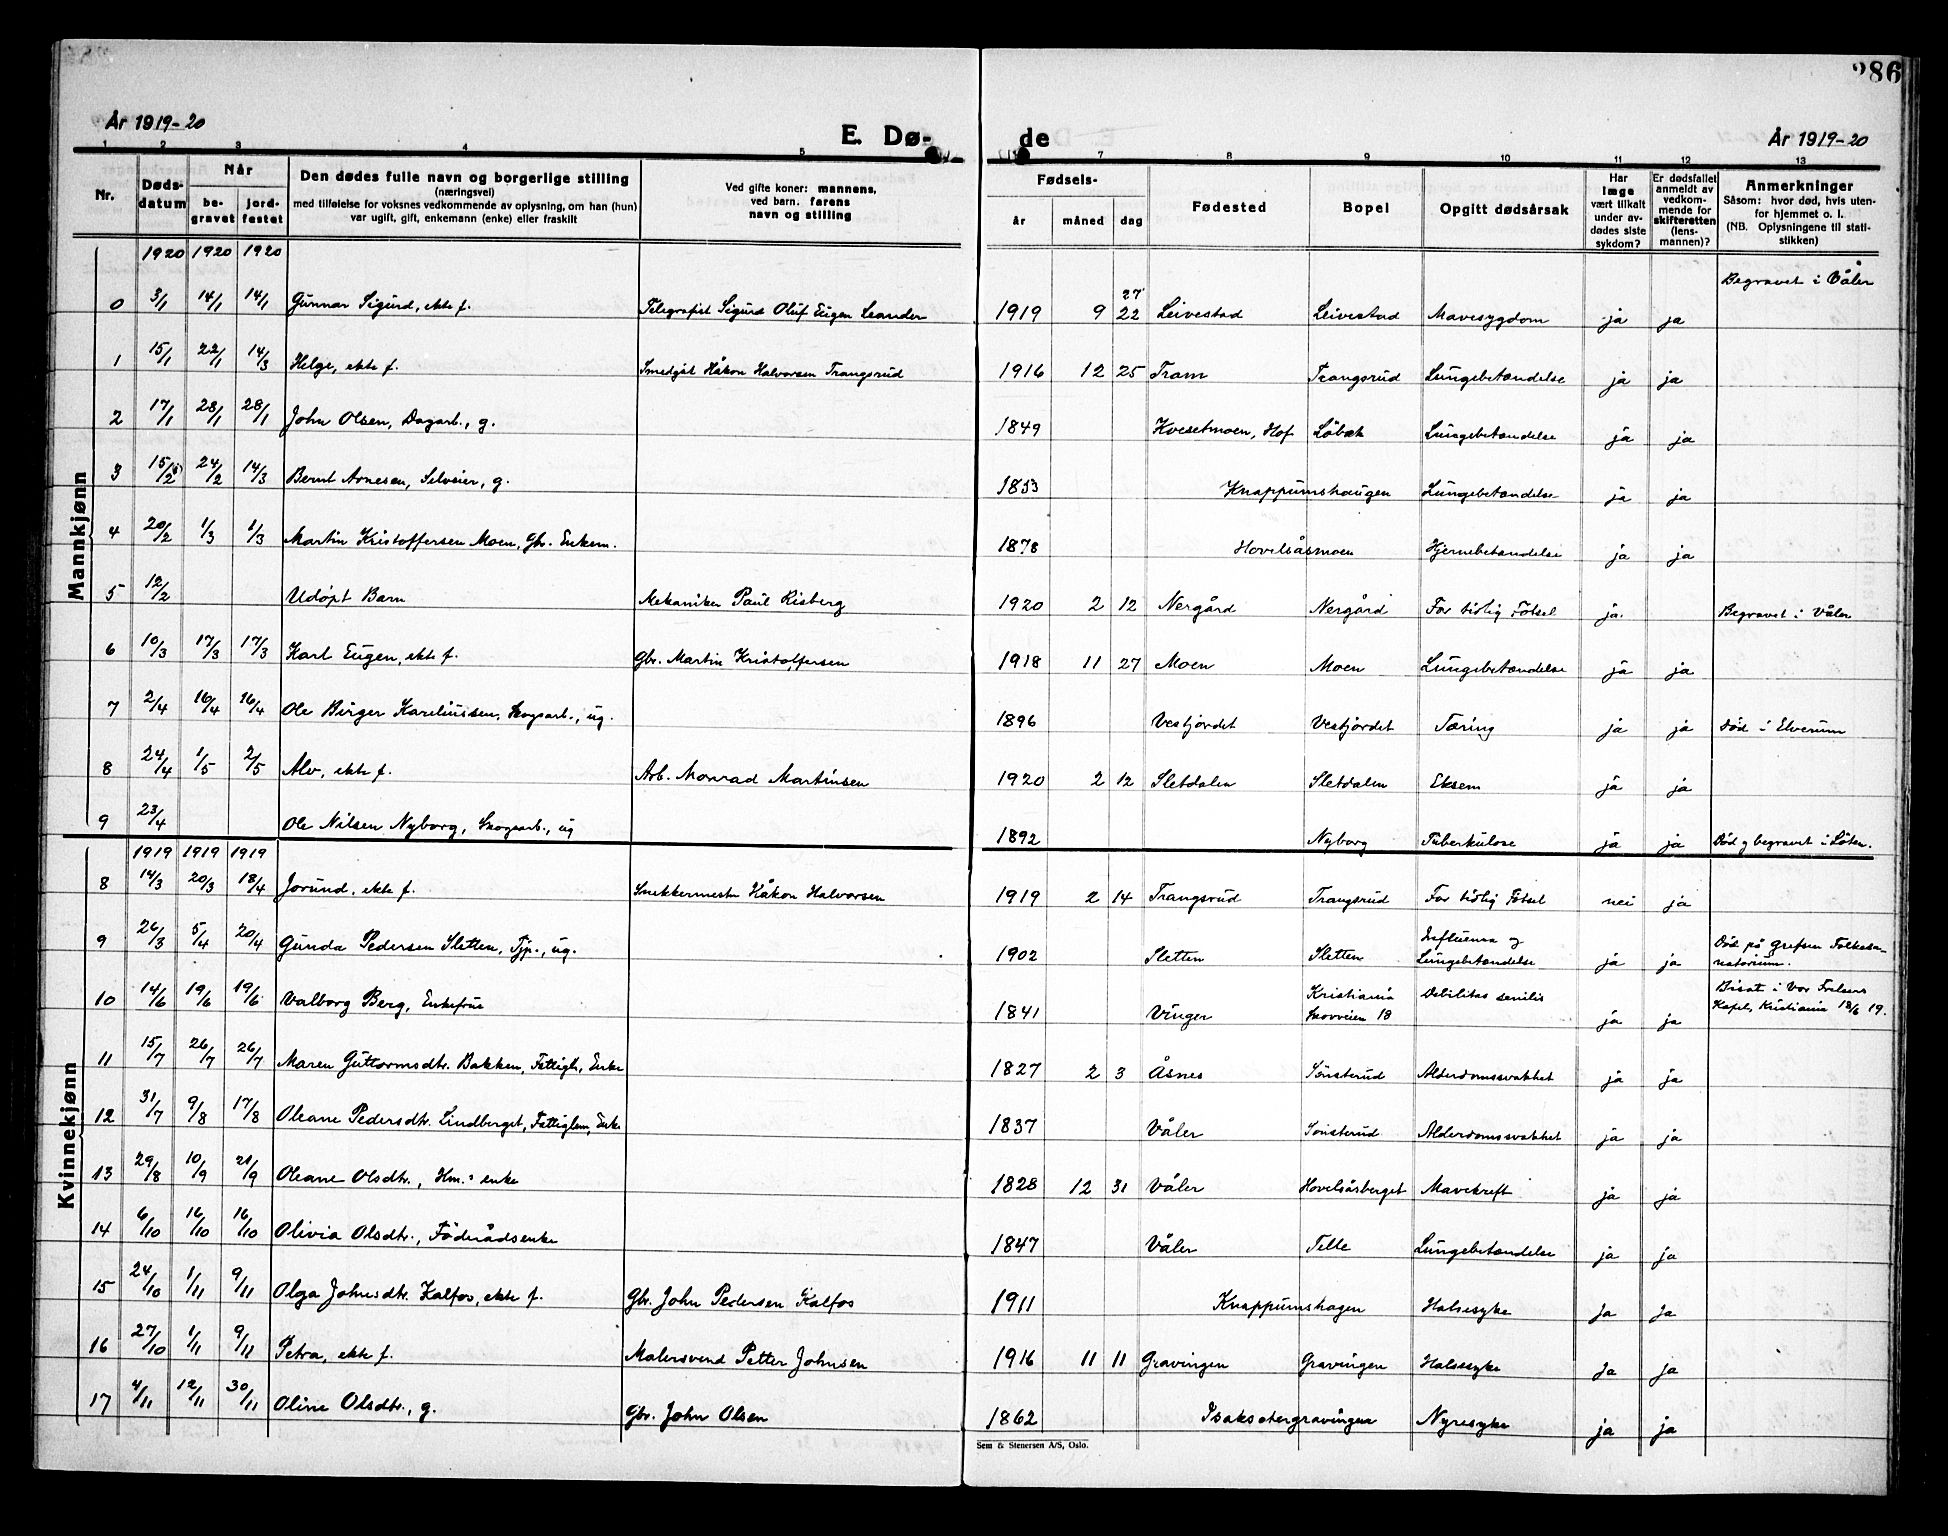 286
År 1919-20
E. Dø-
de
År 1919-20
1 2 3 4 5 7 8 9 10 11 12 13
Nr.
Døds-
datum
Når
be-
gravet
jord-
festet
Den dødes fulle navn og borgerlige stilling
(næringsvei)
med tilføielse for voksnes vedkommende av oplysning, om han (hun)
var ugift, gift, enkemann (enke) eller fraskilt
Ved gifte koner: mannens,
ved barn: farens
navn og stilling
Fødsels-
år måned dag
Fødested
Bopel
Opgitt dødsårsak
Har
læge
vært tilkalt
under av-
dødes siste
sykdom?
Er dødsfallet
anmeldt av
vedkom-
mende for
skifteretten
(lens-
mannen)?
Anmerkninger
Såsom: hvor død, hvis uten-
for hjemmet o. l.
(NB. Oplysningene til stati-
stikken)
Mannkjønn
1920 1920 1920
0 3/1 14/1 14/1 Gunnar Sigurd, ekte f. Telegrafist Sigurd Oluf Eugen Leander 1919 9 27 22 Leivestad Leivestad Mavesygdom ja ja Begravet i Våler
1 15/1 22/1 14/3 Helge, ekte f. Smedgst Håkon Halvorsen Trangsrud 1916 12 25 Tram Trangsrud Lungebetændelse ja ja
2 17/1 28/1 28/1 John Olsen, Dagarb., g. 1849 Kvesetmoen, Hof Löbak Lungebetændelse ja ja
3 15/2 24/2 14/3 Bernt Arnesen, Selveier, g. 1853 Knappumshaugen Lungebetændelse ja ja
4 20/2 1/3 1/3 Martin Kristoffersen Moen, Gbr. Enkem. 1878 Hovelsåsmoen Hjernebetændelse ja ja
5 12/2 Udöpt Barn Mekaniker Paul Risberg 1920 2 12 Nergård Nergård For tidlig Fötsel ja Begravet i Våler
6 10/3 17/3 17/3 Karl Eugen, ekte f. Gbr. Martin Kristoffersen 1918 11 27 Moen Moen Lungebetændelse ja ja
7 2/4 16/4 16/4 Ole Birger Kareliussen, Skogsarb., ug. 1896 Vestjordet Vestjordet Tæring ja ja Död i Elverum
8 24/4 1/5 2/5 Alv, ekte f. Arb. Monrad Martinsen 1920 2 12 Sletdalen Sletdalen Eksem ja ja
9 23/4 Ole Nilsen Nyborg, Skogsarb., ug 1892 Nyborg Tuberkulose ja ja Död og begravet i Löten.
Kvinnekjønn
1919 1919 1919
8 14/3 20/3 18/4 Jorund, ekte f. Snekkermester Håkon Halvorsen 1919 2 14 Trangsrud Trangsrud For tidlig Fötsel nei ja
9 26/3 5/4 20/4 Gunda Pedersen Sletten, Tjp., ug. 1902 Sletten Sletten Influensa og Lungebetændelse ja ja Död på Grefsen Folkesa-
natorium.
10 14/6 19/6 19/6 Valborg Berg, Enkefrue 1841 Vinger Kristiania Skovveien 18 Debilitas senilis ja ja Bisat i Vor Frelsers
Kapel, Kristiania 18/6 19.
11 15/7 26/7 26/7 Maren Guttormsdtr. Bakken, Fattigl., Enke 1827 2 3 Åsnes Sönsterud Alderdomssvakhet ja ja
12 31/7 9/8 17/8 Oleane Pedersdtr. Lindberget, Fattiglem, Enke 1837 Våler Sönsterud Alderdomssvakhet ja ja
13 29/8 10/9 21/9 Oleane Olsdtr., Hm.s enke 1828 12 31 Våler Hovelsåsberget Mavekreft ja ja
14 6/10 16/10 16/10 Olivia Olsdtr., Föderådsenke 1847 Våler Telle Lungebetændelse ja ja
15 24/10 1/11 9/11 Olga Johnsdtr. Kalfos, ekte f. Gbr. John Pedersen Kalfos 1911 Knappumshagen Halsesyke ja ja
16 27/10 1/11 9/11 Petra, ekte f. Malersvend Petter Johnsen 1916 11 11 Gravingen Gravingen Halsesyke ja ja
17 4/11 12/11 30/11 Oline Olsdtr., g. Gbr. John Olsen 1862 Isaksætergravingen Nyresyke ja ja
Sem & Stenersen A/S, Oslo.